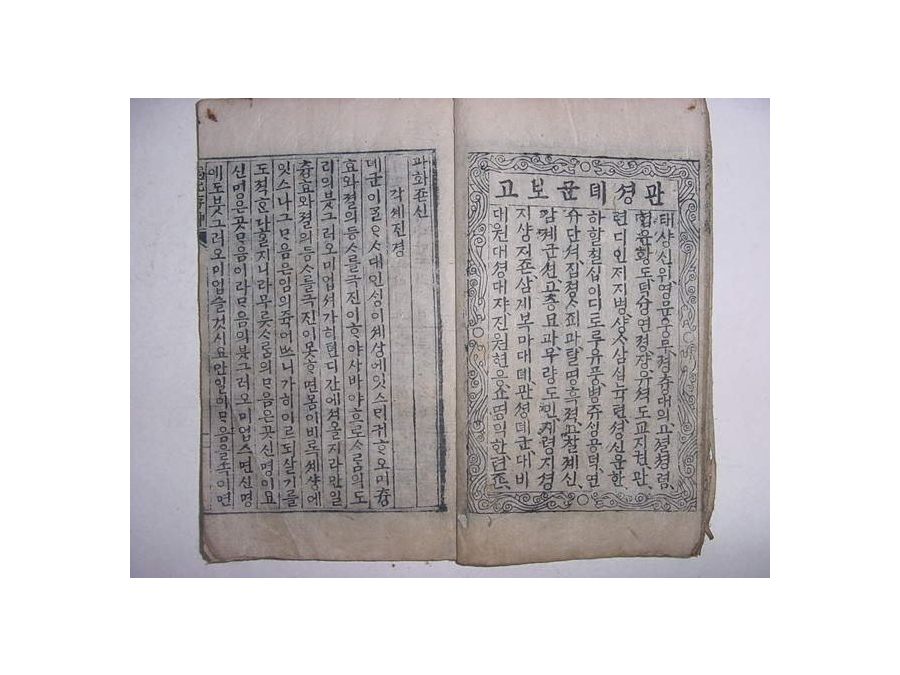 관셩뎨군보고
태샹신위,영문우무,졍츙대의,고졀쳥렴,
협운황도,덕샹연졍,쟝유셕도교지권,관
련디인지지병,샹ᄉᆞ삼십뉵련셩신운한
하할칠십이디로루유풍,병츄싱풍덕,연
슈단셔,집졍ᄉᆞ죄과탈명흑젹,고찰졔신,
감계군션,고죵묘과무량도인,지령지셩
지샹지죤,삼계복마대뎨,관셩뎨군,대비
대원대셩대쟈,진원현응쇼명익한련죤,
과화죤신
각셰진경
뎨군이ᄀᆞᆯᄋᆞᄉᆞ대인싱이셰샹에잇스미귀ᄒᆞ오미츙
효와졀의등ᄉᆞ를극진이ᄒᆞ야사바야흐로ᄉᆞᄅᆞᆷ의도
리의붓그러오미업셔가히텬디간에셔올지라만일
츙효와졀의등ᄉᆞ를극진이못ᄒᆞ면몸이비록셰샹에
잇스나그ᄆᆞ음은임의죽어쓰니가히이르되살기를
도젹ᄒᆞ단ᄒᆞᆯ지니라무릇ᄉᆞᄅᆞᆷ의ᄆᆞ음은곳신명이요
신명은곳ᄆᆞ음이라ᄆᆞ음의붓그러오미업스면신명
에도붓그러오미업슬것시요만일의ᄆᆞ음을쇽이면